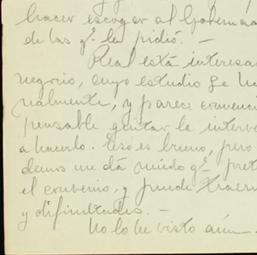 hacer escoger al Goberna
de las q. le pidió. —
Real está interesa
negocio, cuyo estudio se ha
nalmente, y parece convenci
pensable quitar la interve
a hacerlo. Eso es bueno, pero
demos me dá miedo q. pret
el convenio, y puede traern
y dificultades. —
No lo he visto aún.